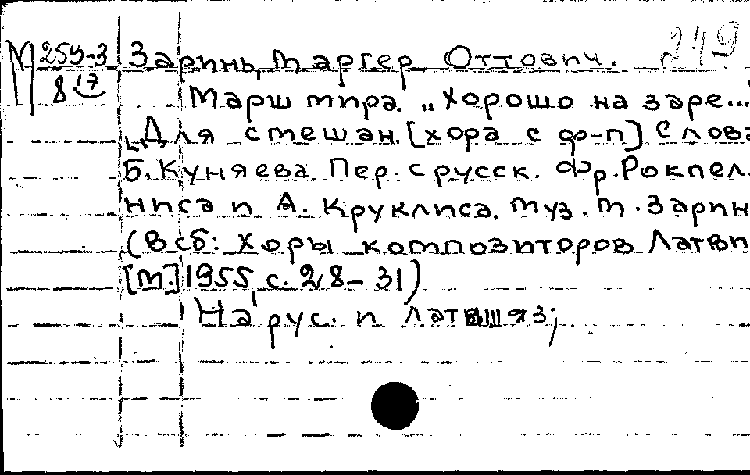 249
М 259-3 Заринь, Маргер Оттович.
8 17
Марш мира. „Хорошо на заре..."
[Для смешан. [хора с ф-п] Слова
Б. Куняева. Пер. с русск. Фр. Рокпел-
ниса и А. Круклиса. Муз. М. Зарин
(В сб: Хоры композиторов Латви
[М.] 1955, с. 28-31)
На рус. и латыш яз;